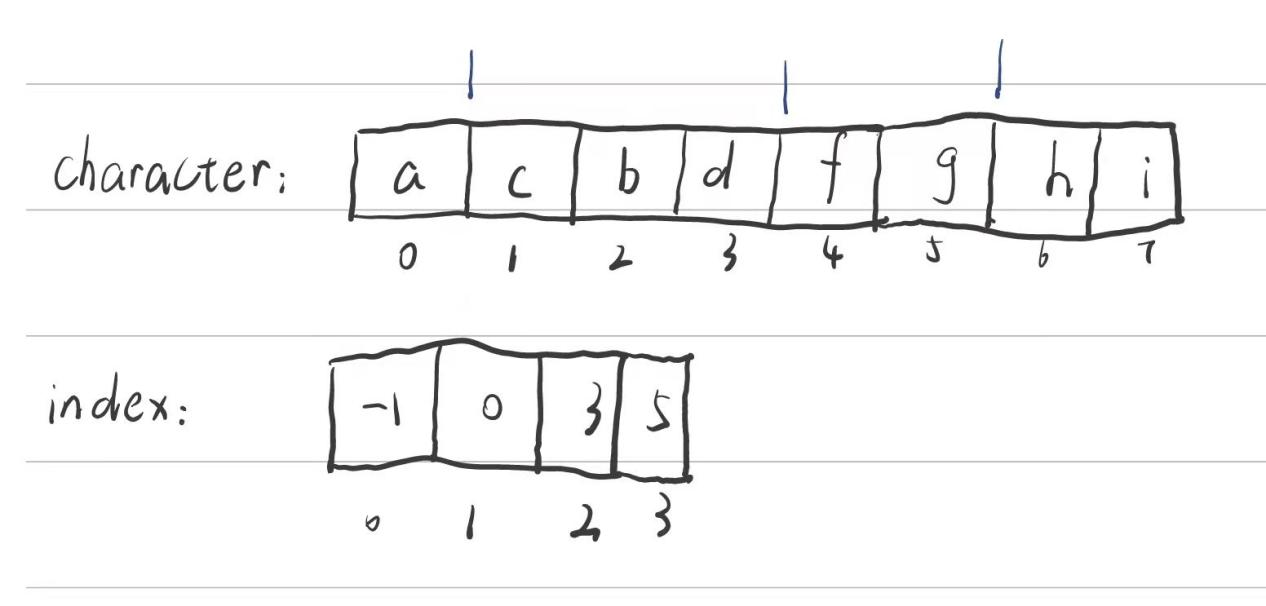 character: a c b d f g h i
0 1 2 3 4 5 6 7
index: -1 0 3 5
0 1 2 3